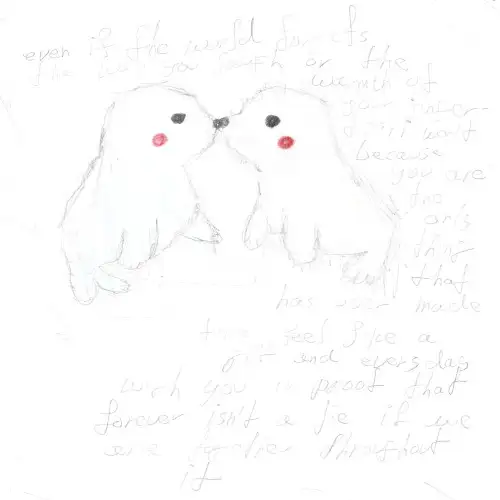 even if the world forgets
the way you laugh or the
warmth of
your
i won't
because
you are
the
thing
that
has ever made
time feel like a
gift and every day
with you is proof that
forever isn't a lie if we
are together throughout
it